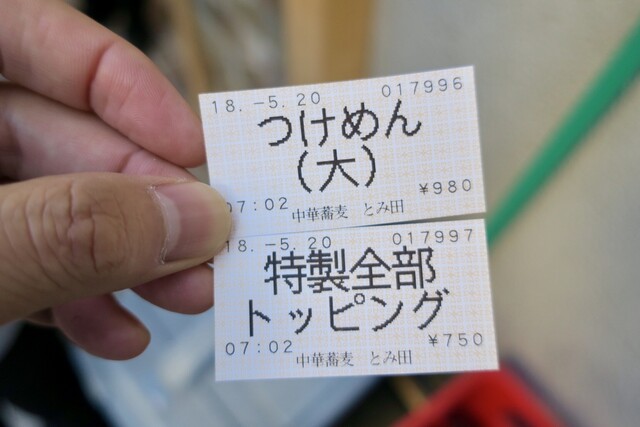 18. -5. 20 017996
つけめん
(大)
¥980
07:02 中華蕎麦 とみ田
18. -5. 20 017997
特製全部
トッピング
¥750
07:02 中華蕎麦 とみ田